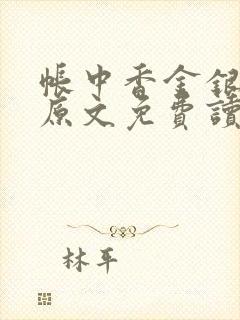 帳中香金銀
原文免費讀
林平